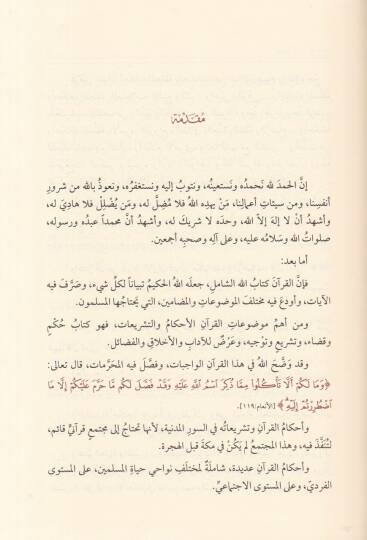 مُقَدِّمَة
إنَّ الحمدَ لله نَحمدُه ونَستعينُه، ونتوبُ إليه ونستغفرُه، ونعوذُ بالله من شرورِ
أنفسِنا، ومن سيئاتِ أعمالِنا، مَنْ يهدِه اللهُ فلا مُضِلَّ له، ومَن يُضْلِلْ فلا هاديَ له،
وأشهدُ أنْ لا إلهَ إلاَّ الله، وحدَه لا شريكَ له، وأشهدُ أنَّ محمداً عبدُه ورسوله،
صلواتُ الله وسَلامُه عليه، وعلى آلِه وصحبِه أجمعين.
أما بعد:
فإنَّ القرآنَ كتابُ الله الشاملِ، جعلَه اللهُ الحكيمُ تبياناً لكلِّ شيء، وصَرَّفَ فيه
الآيات، وأودعَ فيه مختلفَ الموضوعاتِ والمضامين، التي يَحتاجُها المسلمون.
ومن أهمِّ موضوعاتِ القرآنِ الأحكامُ والتشريعات، فهو كتابُ حُكْمٍ
وقضاء، وتشريعٍ وتوْجيه، وعَرْضٌ للآدابِ والأخلاقِ والفضائل.
وقد وَضَّحَ اللهُ في هذا القرآنِ الواجبات، وفصَّلَ فيه المحَرَّمات، قال تعالى:
﴿وَمَا لَكُمْ أَلَّا تَأْكُلُوا مِمَّا ذُكِرَ اسْمُ اللَّهِ عَلَيْهِ وَقَدْ فَصَّلَ لَكُم مَّا حَرَّمَ عَلَيْكُمْ إِلَّا مَا
اضْطُرِرْتُمْ إِلَيْهِ﴾ [الأنعام: ١١٩].
وأحكامُ القرآنِ وتشريعاتُه في السورِ المدنية، لأنها تحتاجُ إلى مجتمعٍ قرآنيٍّ قائم،
لتُنَفَّذَ فيه، وهذا المجتمعُ لم يَكُنْ في مكةَ قبل الهجرة.
وأحكامُ القرآنِ عديدة، شاملةٌ لمختلَفِ نواحي حياةِ المسلمين، على المستوى
الفرديّ، وعلى المستوى الاجتماعيّ.